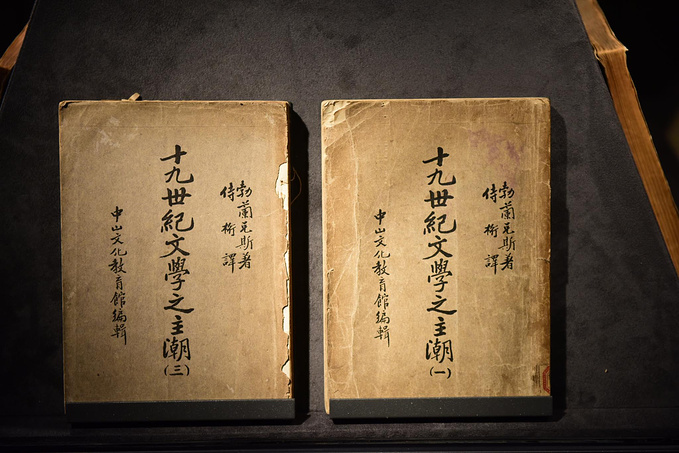 勃蘭兌斯著
侍桁譯
十九世紀文學之主潮
(一)
中山文化教育館編輯
勃蘭兌斯著
侍桁譯
十九世紀文學之主潮
(三)
中山文化教育館編輯